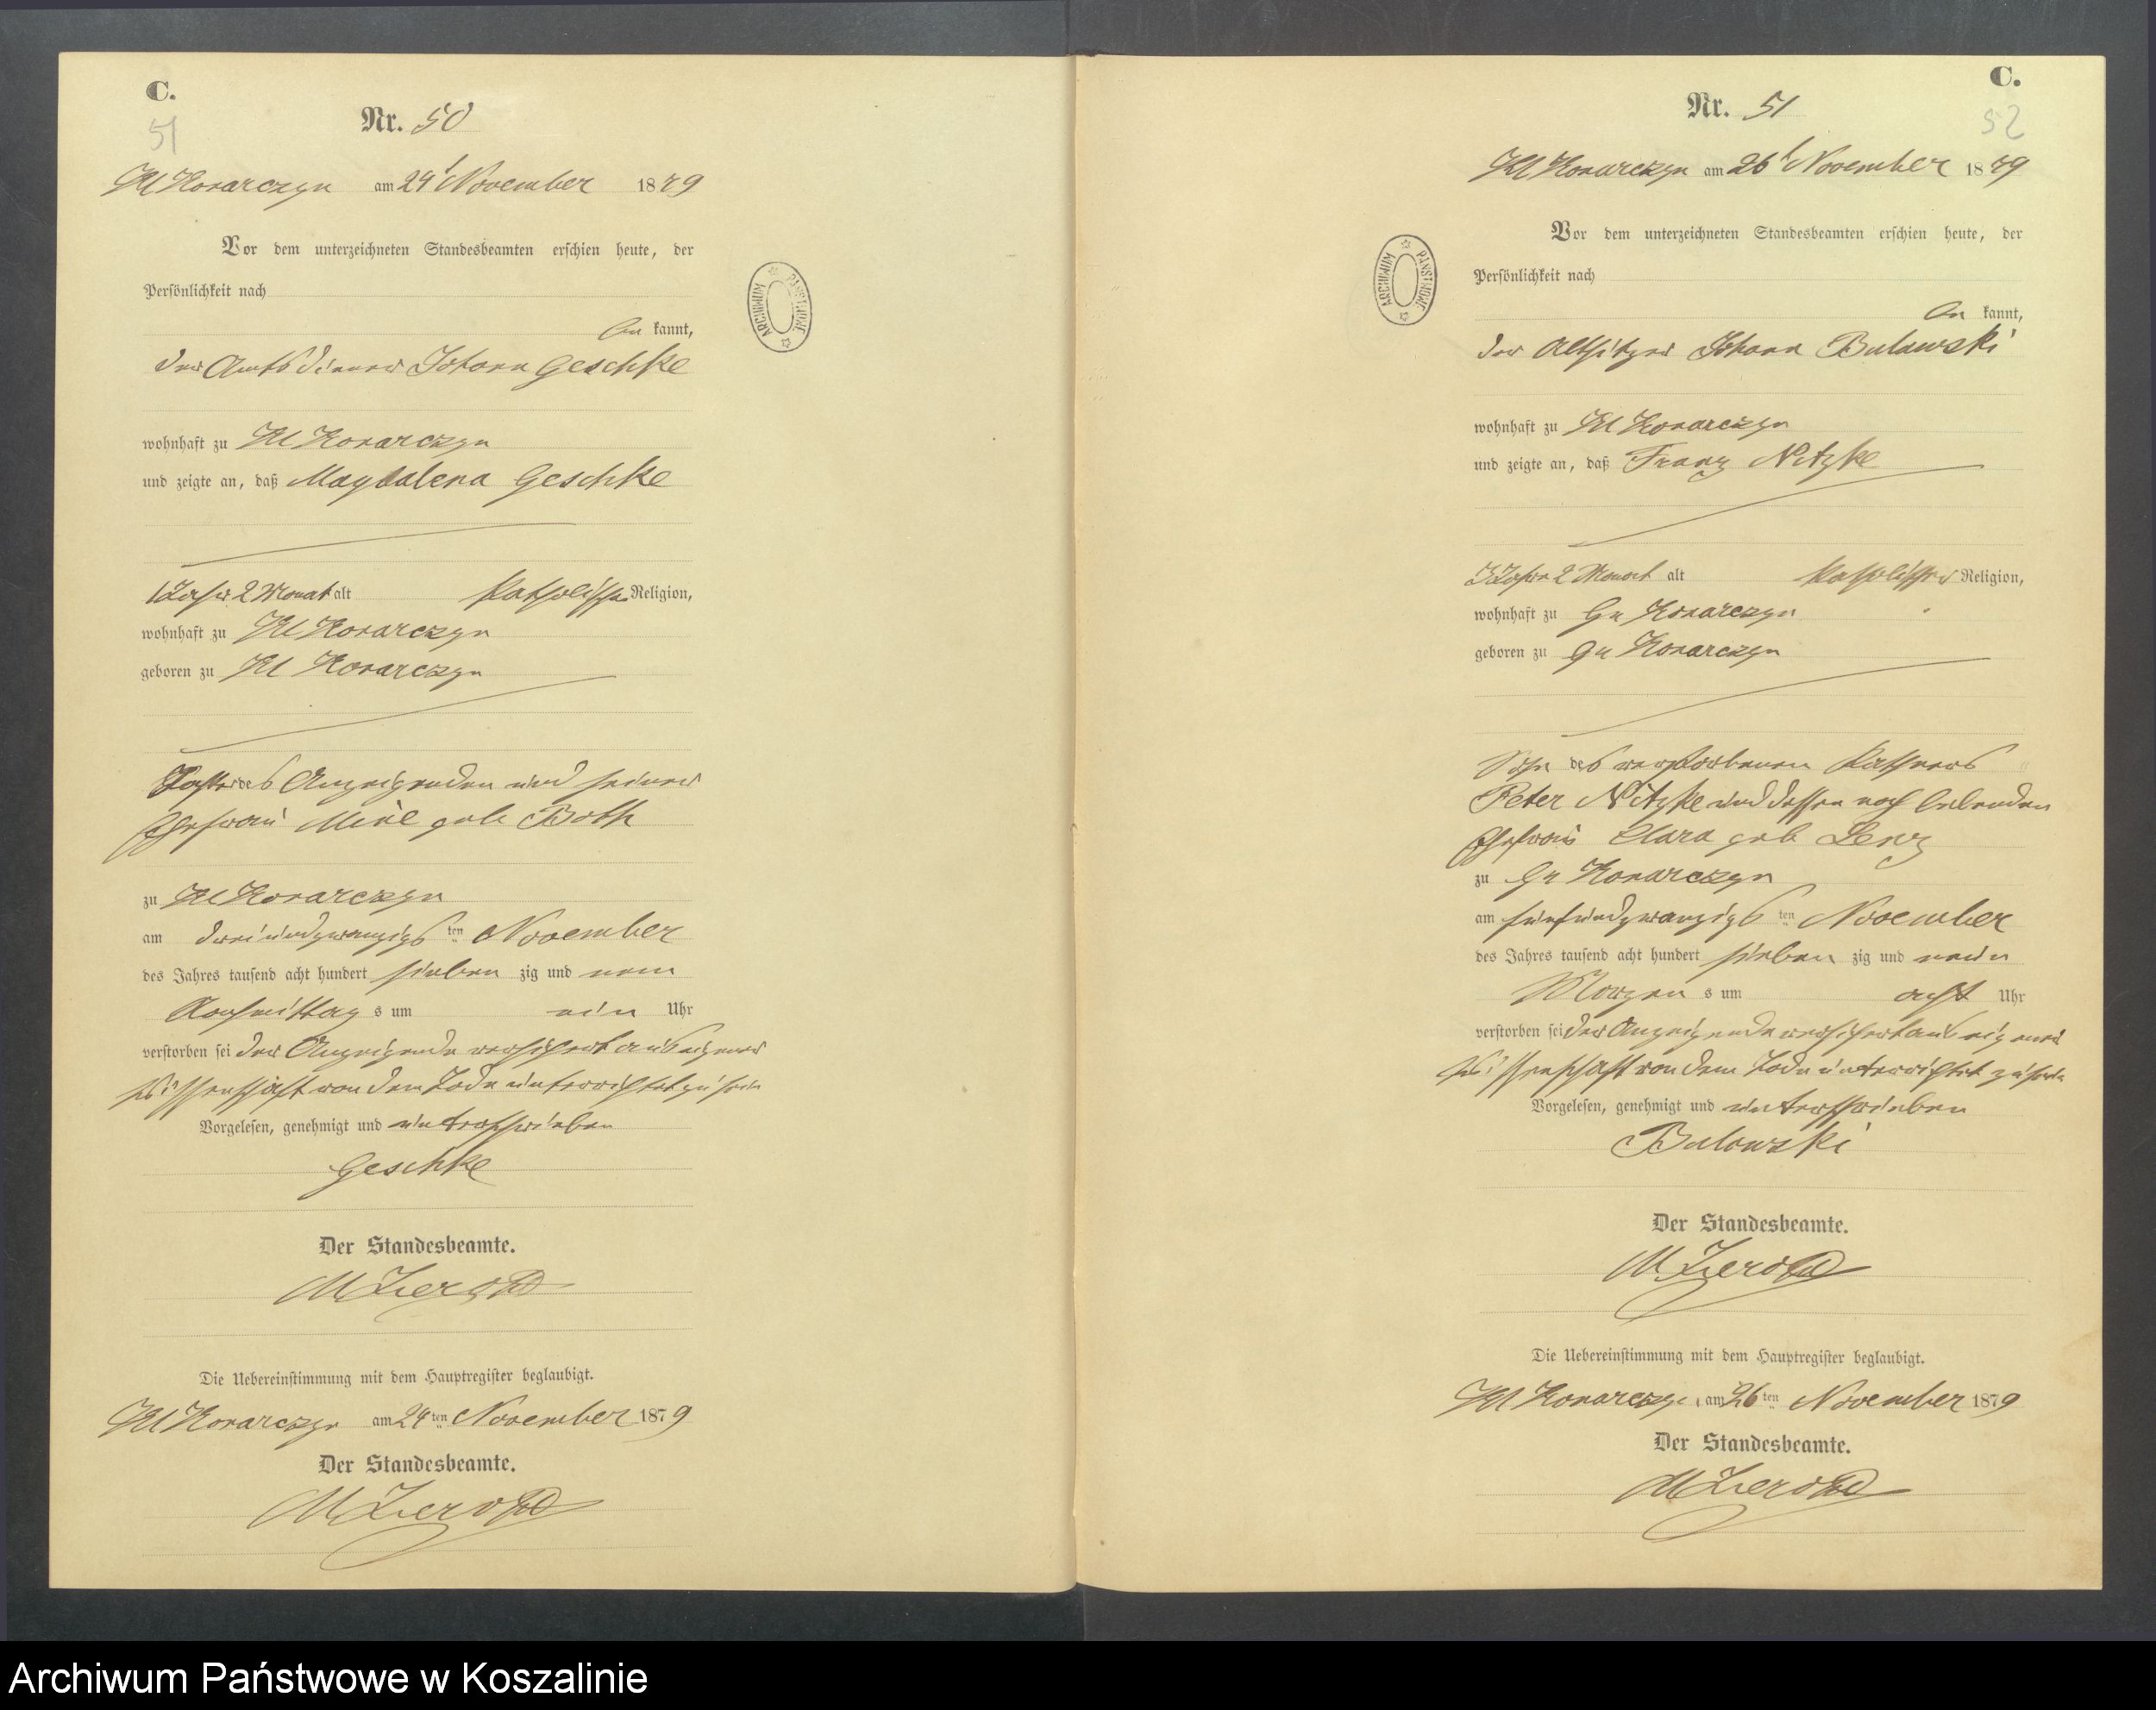 C.
51
Nr. 50
Kl Konarczyn am 24t November 1879
Vor dem unterzeichneten Standesbeamten erschien heute, der
Persönlichkeit nach
be kannt,
der Amtsdiener Johann Geschke
wohnhaft zu Kl Konarczyn
und zeigte an, daß Magdalena Geschke
1 Jahr 2 Monat alt katholischer Religion,
wohnhaft zu Kl Konarczyn
geboren zu Kl Konarczyn
Tochter des Anzeigenden und seiner
Ehefrau geb Both
zu Kl Konarczyn
am dreiundzwanzigs ten November
des Jahres tausend acht hundert sieben zig und neun
Nachmittag s um ein Uhr
verstorben sei der Anzeigende versichert aus eigener
Wissenschaft von dem Tode unterrichtet zu sein
Vorgelesen, genehmigt und unterschrieben
Geschke
Der Standesbeamte.
Die Uebereinstimmung mit dem Hauptregister beglaubigt.
Kl Konarczyn am 24ten November 1879
Der Standesbeamte.
C.
52
Nr. 51
Kl Konarczyn am 26t November 1879
Vor dem unterzeichneten Standesbeamten erschien heute, der
Persönlichkeit nach
be kannt,
der Altsitzer Johann Bulawski
wohnhaft zu Kl Konarczyn
und zeigte an, daß Franz Nitzke
3 Jahr 2 Monat alt katholischer Religion,
wohnhaft zu Gr Konarczyn
geboren zu Gr Konarczyn
Sohn des verstorbenen Kathners
Peter Nitzke und dessen noch lebenden
Ehefrau Clara geb Lenz
zu Gr Konarczyn
am fünfundzwanzigs ten November
des Jahres tausend acht hundert sieben zig und neun
Morgen s um acht Uhr
verstorben sei der Anzeigende versichert aus eigener
Wissenschaft von dem Tode unterrichtet zu sein
Vorgelesen, genehmigt und unterschrieben
Bulowski
Der Standesbeamte.
Die Uebereinstimmung mit dem Hauptregister beglaubigt.
Kl Konarczyn am 26ten November 1879
Der Standesbeamte.
ARCHIWUM PAŃSTWOWE
ARCHIWUM PAŃSTWOWE
Archiwum Państwowe w Koszalinie